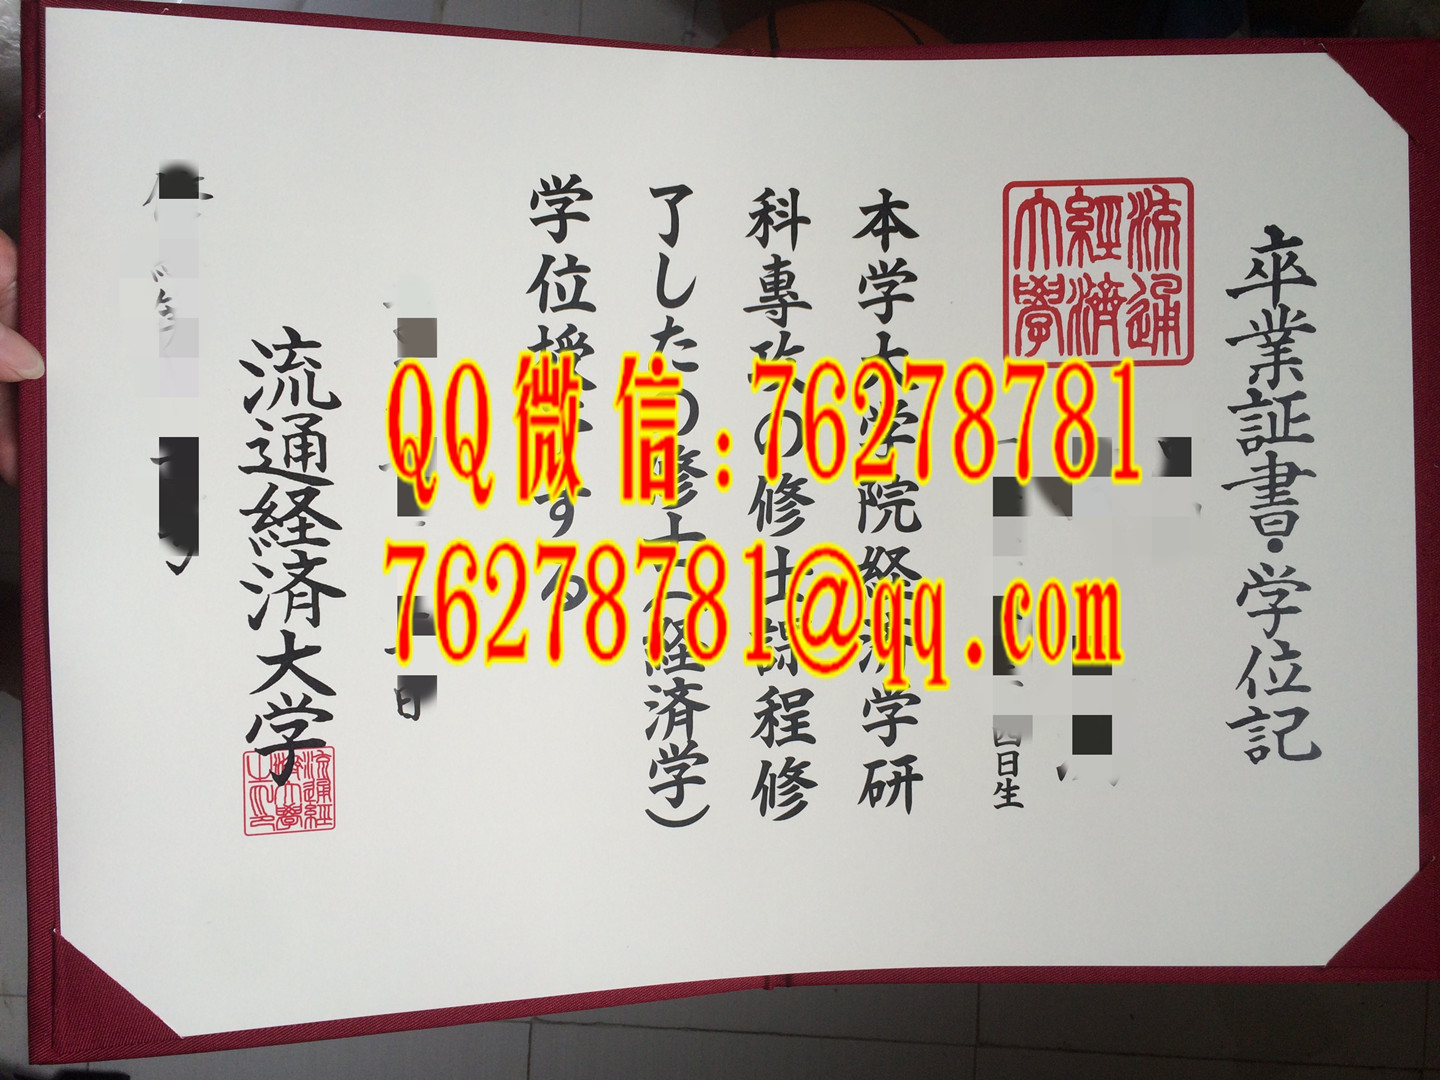 卒業証書・学位記
流通
經濟
大學
四日生
本学大学院経済学研
科専攻の修士課程修
了したの修士(経済学)
学位授与する
日
流通経済大学
QQ微信:76278781
76278781@qq.com